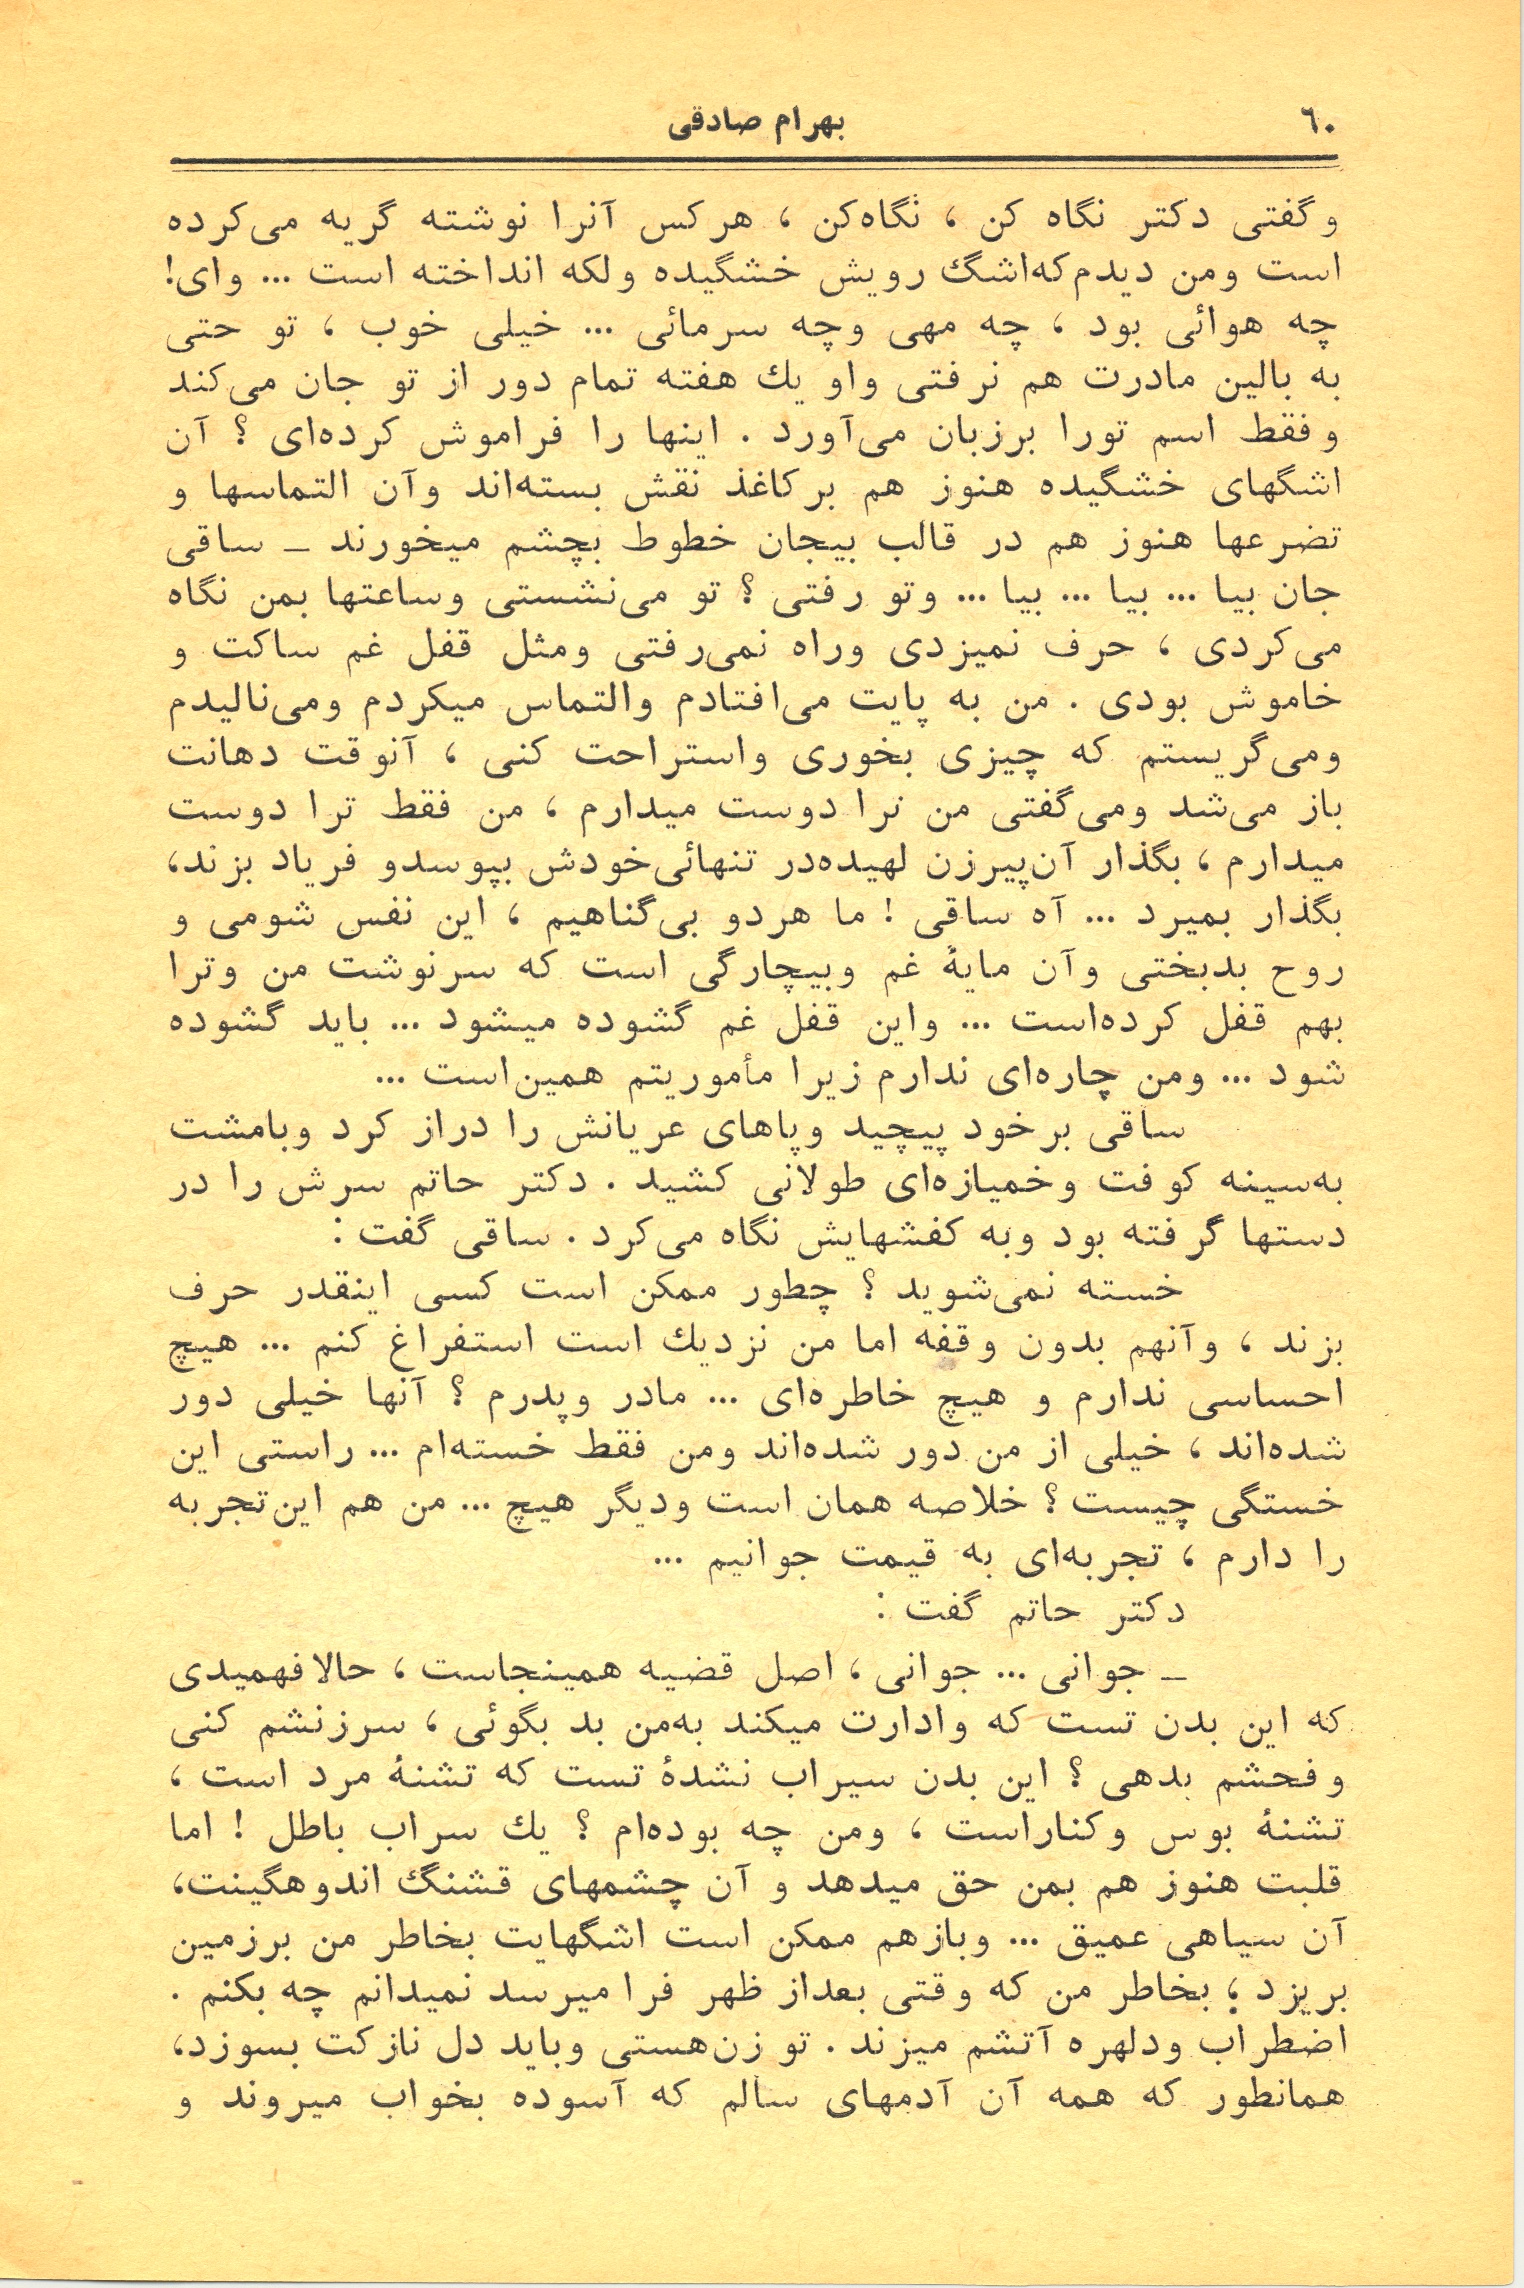 ٦٠
بهرام صادقی
و گفتی دکتر نگاه کن ، نگاه‌کن ، هرکس آنرا نوشته گریه می‌کرده
است ومن دیدم‌که‌اشگ رویش خشگیده ولکه انداخته است ... وای!
چه هوائی بود ، چه مهی وچه سرمائی ... خیلی خوب ، تو حتی
به بالین مادرت هم نرفتی واو یك هفته تمام دور از تو جان می‌کند
و فقط اسم تورا برزبان می‌آورد . اینها را فراموش کرده‌ای ؟ آن
اشگهای خشگیده هنوز هم بر کاغذ نقش بسته‌اند وآن التماسها و
تضرعها هنوز هم در قالب بیجان خطوط بچشم میخورند ـ ساقی
جان بیا ... بیا ... بیا ... وتو رفتی ؟ تو می‌نشستی وساعتها بمن نگاه
می‌کردی ، حرف نمیزدی وراه نمی‌رفتی ومثل قفل غم ساکت و
خاموش بودی . من به پایت می‌افتادم والتماس میکردم ومی‌نالیدم
ومی‌گریستم که چیزی بخوری واستراحت کنی ، آنوقت دهانت
باز می‌شد ومی‌گفتی من ترا دوست میدارم ، من فقط ترا دوست
میدارم ، بگذار آن‌پیرزن لهیده‌در تنهائی‌خودش بپوسدو فریاد بزند،
بگذار بمیرد ... آه ساقی ! ما هردو بی‌گناهیم ، این نفس شومی و
روح بدبختی وآن مایهٔ غم وبیچارگی است که سرنوشت من وترا
بهم قفل کرده‌است ... واین قفل غم گشوده میشود ... باید گشوده
شود ... ومن چاره‌ای ندارم زیرا مأموریتم همین‌است ...
ساقی برخود پیچید وپاهای عریانش را دراز کرد وبامشت
به‌سینه کوفت وخمیازه‌ای طولانی کشید . دکتر حاتم سرش را در
دستها گرفته بود وبه کفشهایش نگاه می‌کرد . ساقی گفت :
خسته نمی‌شوید ؟ چطور ممکن است کسی اینقدر حرف
بزند ، وآنهم بدون وقفه اما من نزدیك است استفراغ کنم ... هیچ
احساسی ندارم و هیچ خاطره‌ای ... مادر وپدرم ؟ آنها خیلی دور
شده‌اند ، خیلی از من دور شده‌اند ومن فقط خسته‌ام ... راستی این
خستگی چیست ؟ خلاصه همان است ودیگر هیچ ... من هم این‌تجربه
را دارم ، تجربه‌ای به قیمت جوانیم ...
دکتر حاتم گفت :
ـ جوانی ... جوانی ، اصل قضیه همینجاست ، حالا فهمیدی
که این بدن تست که وادارت میکند به‌من بد بگوئی ، سرزنشم کنی
وفحشم بدهی ؟ این بدن سیراب نشدهٔ تست که تشنهٔ مرد است ،
تشنهٔ بوس وکناراست ، ومن چه بوده‌ام ؟ یك سراب باطل ! اما
قلبت هنوز هم بمن حق میدهد و آن چشمهای قشنگ اندوهگینت،
آن سیاهی عمیق ... وبازهم ممکن است اشگهایت بخاطر من برزمین
بریزد ؛ بخاطر من که وقتی بعداز ظهر فرا میرسد نمیدانم چه بکنم .
اضطراب ودلهره آتشم میزند . تو زن‌هستی وباید دل نازکت بسوزد،
همانطور که همه آن آدمهای سالم که آسوده بخواب میروند و